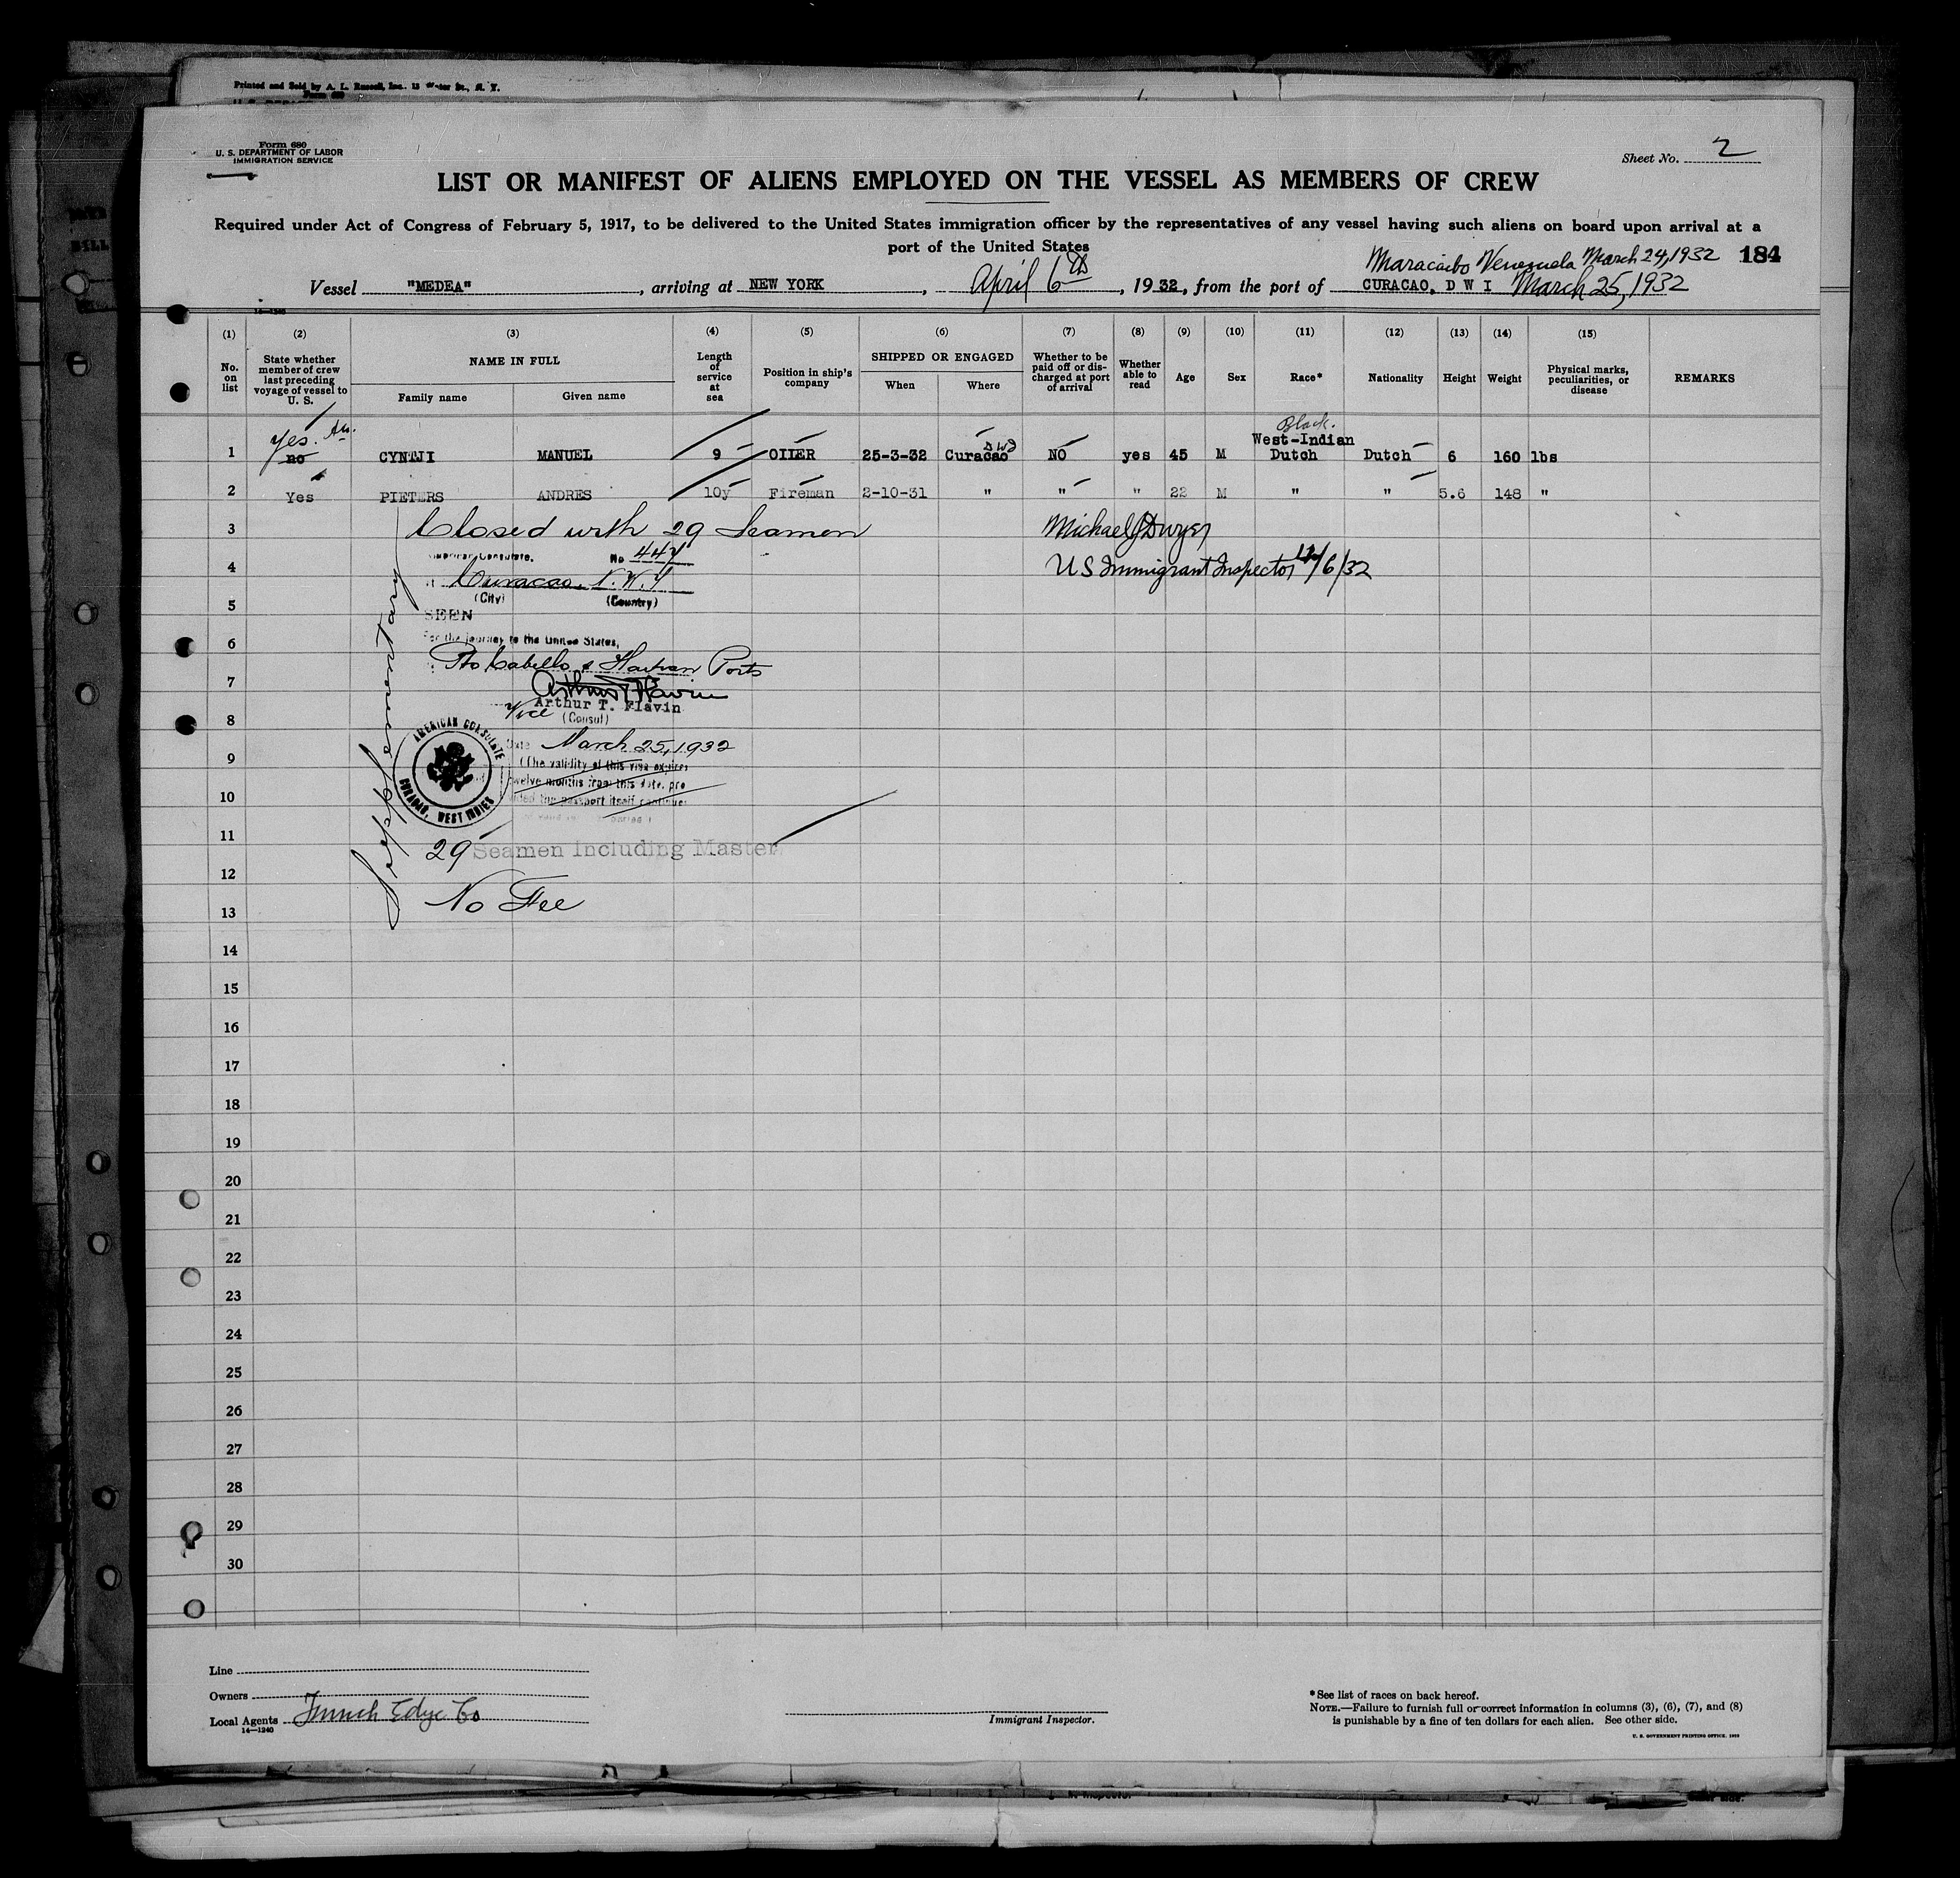 Printed and Sold by A. L. Russell, Inc., 13 Water St., N. Y.
Form 680
Form 680
U. S. DEPARTMENT OF LABOR
IMMIGRATION SERVICE
Sheet No. 2
LIST OR MANIFEST OF ALIENS EMPLOYED ON THE VESSEL AS MEMBERS OF CREW
Required under Act of Congress of February 5, 1917, to be delivered to the United States immigration officer by the representatives of any vessel having such aliens on board upon arrival at a
port of the United States
Maracaibo Venezuela March 24, 1932 184
Vessel "MEDEA", arriving at NEW YORK, April 6th, 1932, from the port of CURACAO, D W I March 25, 1932
14—1240
(1) (2) (3) (4) (5) (6) (7) (8) (9) (10) (11) (12) (13) (14) (15)
No. on list
State whether member of crew last preceding voyage of vessel to U. S.
NAME IN FULL
Family name Given name
Length of service at sea
Position in ship's company
SHIPPED OR ENGAGED
When Where
Whether to be paid off or discharged at port of arrival
Whether able to read
Age
Sex
Race*
Nationality
Height
Weight
Physical marks, peculiarities, or disease
REMARKS
Yes. Black.
West-Indian
1 no CYNTJI MANUEL 9 OIIER 25-3-32 Curacao DWI NO yes 45 M Dutch Dutch 6 160 lbs
2 Yes PIETERS ANDRES 10y Fireman 2-10-31 " " " 22 M " " 5.6 148 "
3 Closed with 29 Seamen Michael J Dwyer
American Consulate. No 447
4 Curacao, N.W.I US Immigrant Inspector 4/6/32
(City) (Country)
5
SEEN
For the journey to the United States,
6
Pto Cabello & Haitian Ports
7
Arthur T. Flavin
Arthur T. Flavin
Vice (Consul)
8
AMERICAN CONSULATE
CURACAO, WEST INDIES
Date March 25, 1932
9 (The validity of this visa expires
twelve months from this date, pro
10 vided the passport itself continues
11
29 Seamen Including Master
12
No Fee
13
14
15
16
17
18
19
20
21
22
23
24
25
26
27
28
29
30
Line
Owners
Local Agents Funch Edye Co
14—1240
Immigrant Inspector.
*See list of races on back hereof.
NOTE.—Failure to furnish full or correct information in columns (3), (6), (7), and (8)
is punishable by a fine of ten dollars for each alien. See other side.
U. S. GOVERNMENT PRINTING OFFICE